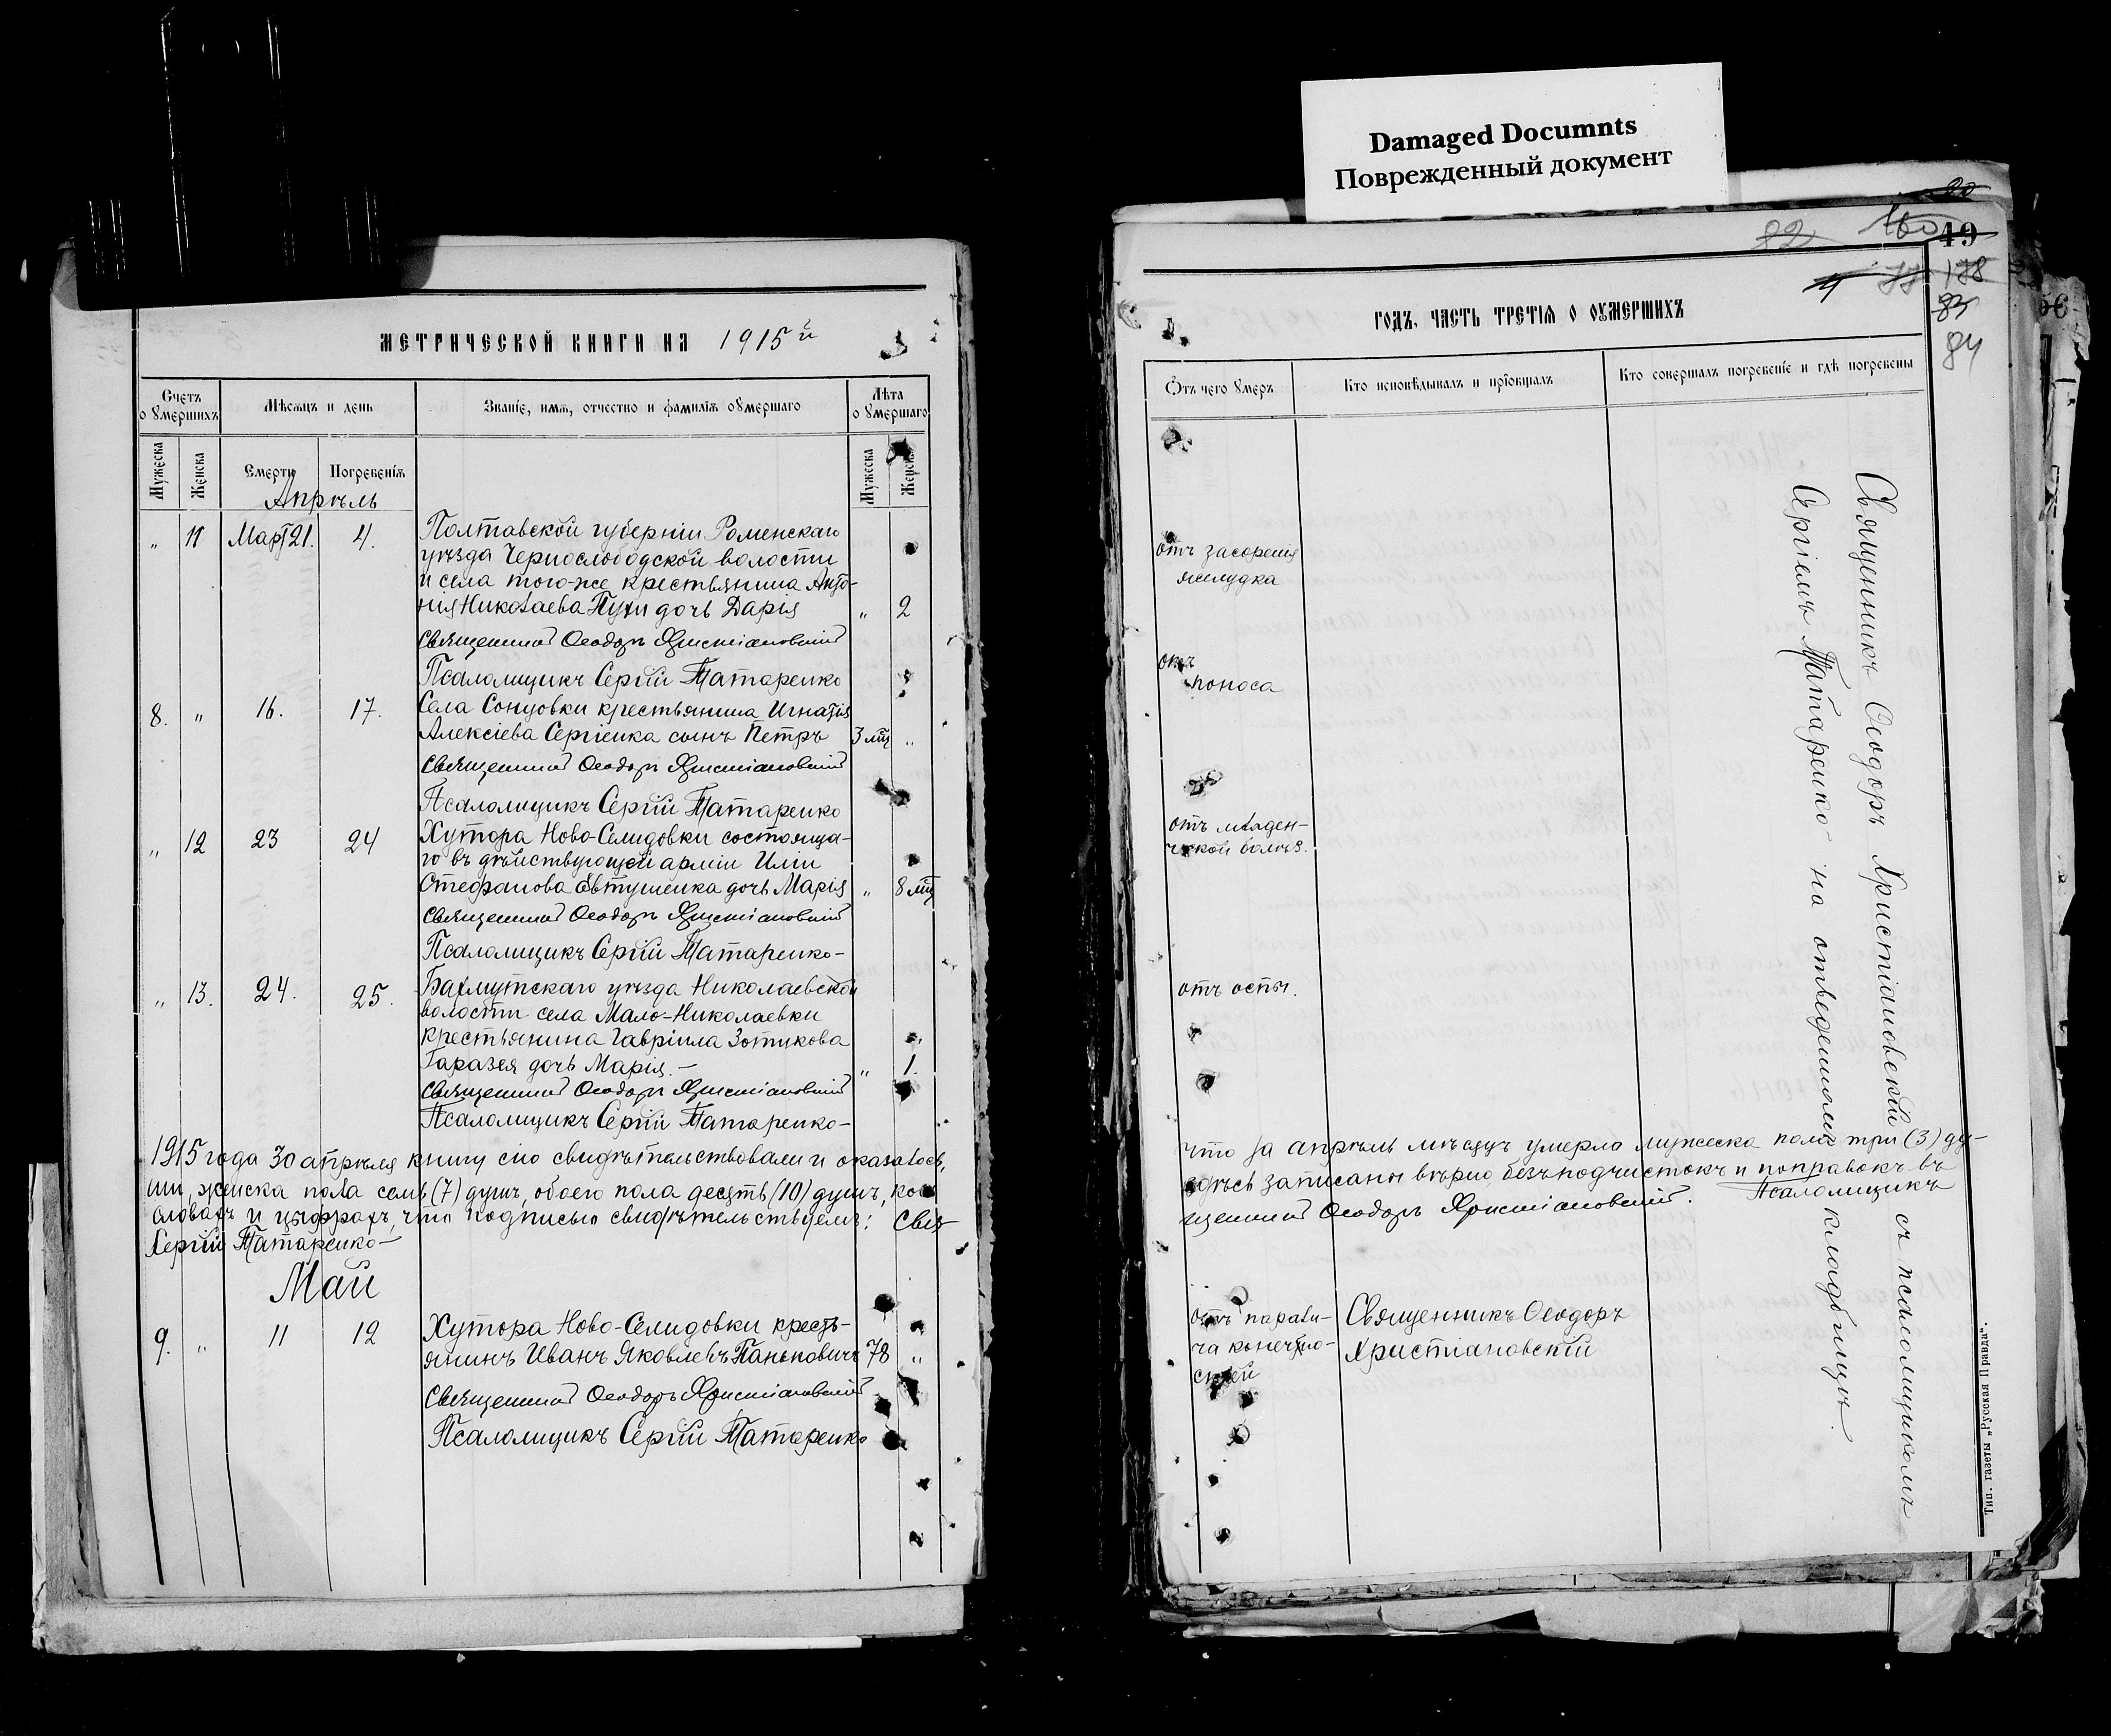 Damaged Documnts
Поврежденный документ
МЕТРИЧЕСКОЙ КНИГИ НА 1915 й
Счетъ о умершихъ
Мѣсяцъ и день
Званіе, имя, отчество и фамилія умершаго
Лѣта о умершаго
Мужеска
Женска
Смерти
Погребенія
Мужеска
Женска
Апрѣль
„ 11 Март 21. 4. Полтавской губерніи Роменскаго
уѣзда Чернослободской волости
и села того-же крестьянина Анто-
нія Николаева Пухи дочь Дарія „ 2
Священникъ Ѳеодоръ Христіановскій
Псаломщикъ Сергій Татаренко
8. „ 16. 17. Села Сонцовки крестьянина Игнатія
Алексіева Сергіенка сынъ Петръ 3 мц „
Священникъ Ѳеодоръ Христіановскій
Псаломщикъ Сергій Татаренко
„ 12 23 24 Хутора Ново-Селидовки состояща-
го въ дѣйствующей арміи Иліи
Стефанова Евтушенка дочь Марія „ 8 мц
Священникъ Ѳеодоръ Христіановскій
Псаломщикъ Сергій Татаренко-
„ 13. 24. 25. Бахмутскаго уѣзда Николаевской
волости села Мало-Николаевки
крестьянина Гавріила Зотикова
Гаразея дочь Марія.- „ 1.
Священникъ Ѳеодоръ Христіановскій
Псаломщикъ Сергій Татаренко-
1915 года 30 апрѣля книгу сію свидѣтельствовали и оказалось,
ши, женска пола семь (7) душъ, обоего пола десять (10) душъ, кои
словахъ и цыфрахъ, что подписью свидѣтельствуемъ: Свя-
Сергій Татаренко-
Май
9. „ 11 12 Хутора Ново-Селидовки кресть-
янинъ Иванъ Яковлевъ Паньковичъ 78 „
Священникъ Ѳеодоръ Христіановскій
Псаломщикъ Сергій Татаренко
82
49
178
83
84
ГОДЪ, ЧАСТЬ ТРЕТІЯ О УМЕРШИХЪ
Отъ чего умеръ
Кто исповѣдывалъ и пріобщалъ
Кто совершалъ погребеніе и гдѣ погребены
отъ засоренія
желудка
отъ
поноса
отъ младен-
ческой болѣз.
отъ оспы.
Священникъ Ѳеодоръ Христіановскій съ псаломщикомъ
Сергіемъ Татаренко на отведенномъ кладбищѣ.
что за апрѣль мѣсяцъ умерло мужеска пола три (3) ду-
здѣсь записаны вѣрно, безъ подчистокъ и поправокъ въ
щенникъ Ѳеодоръ Христіановскій. Псаломщикъ
отъ парали-
ча конечно-
стей
Священникъ Ѳеодоръ
Христіановскій
Тип. газеты „Русская Правда“.